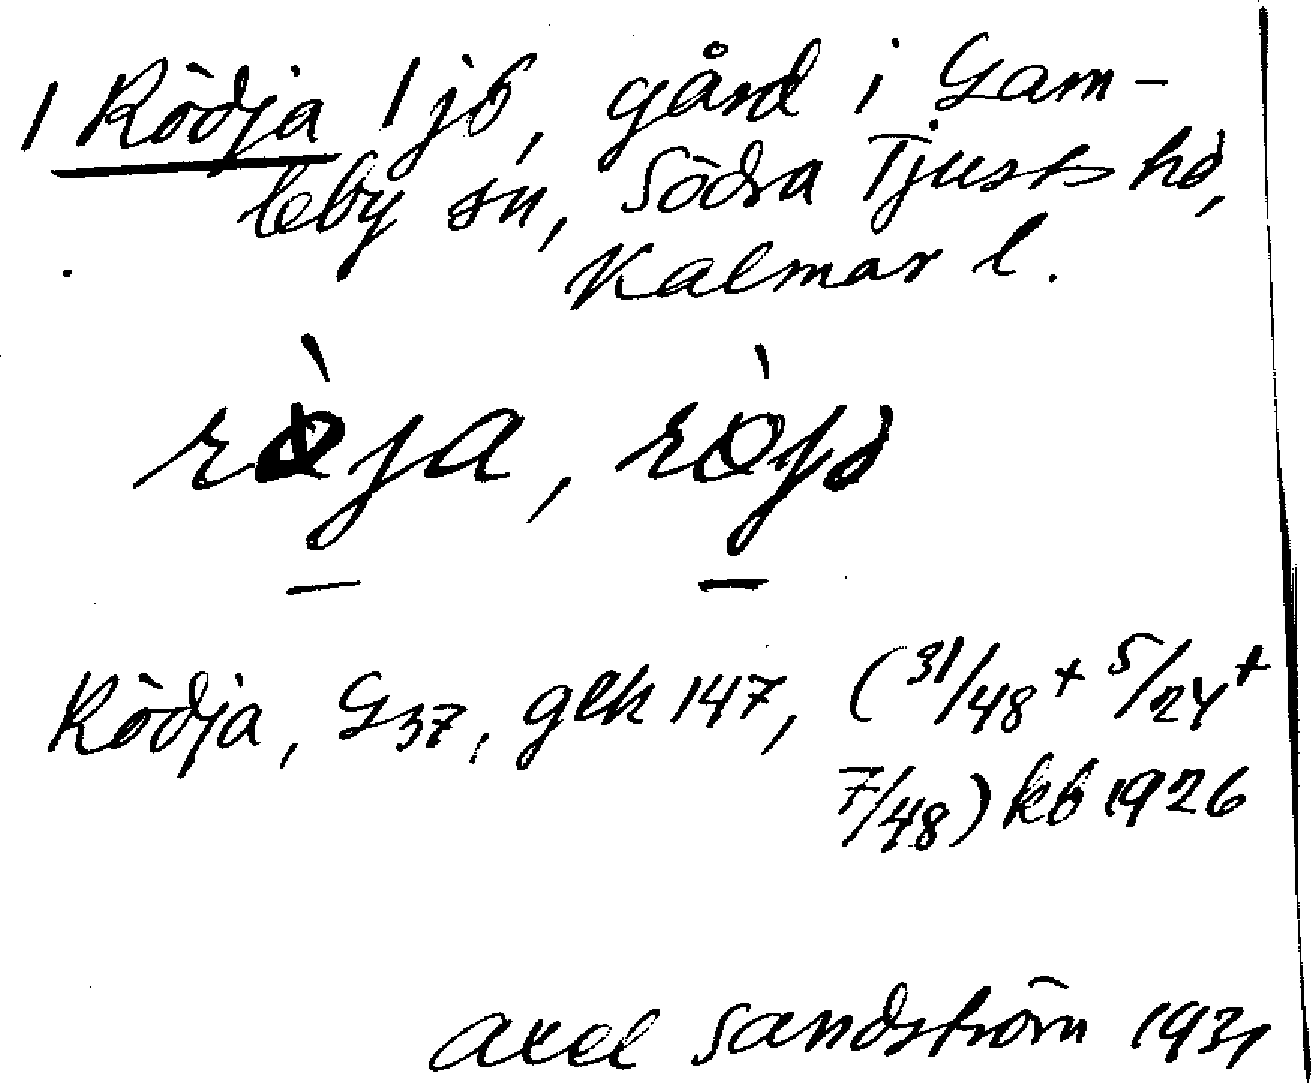 1 Rödja 1 jb, gård i Gam-
leby sn, Södra Tjusts hd,
Kalmar l.
rø̀ja, rø̀jə
Rödja, G37, glk 147, (31/48 + 5/24 +
7/48) kb 1926
Axel Sandström 1931